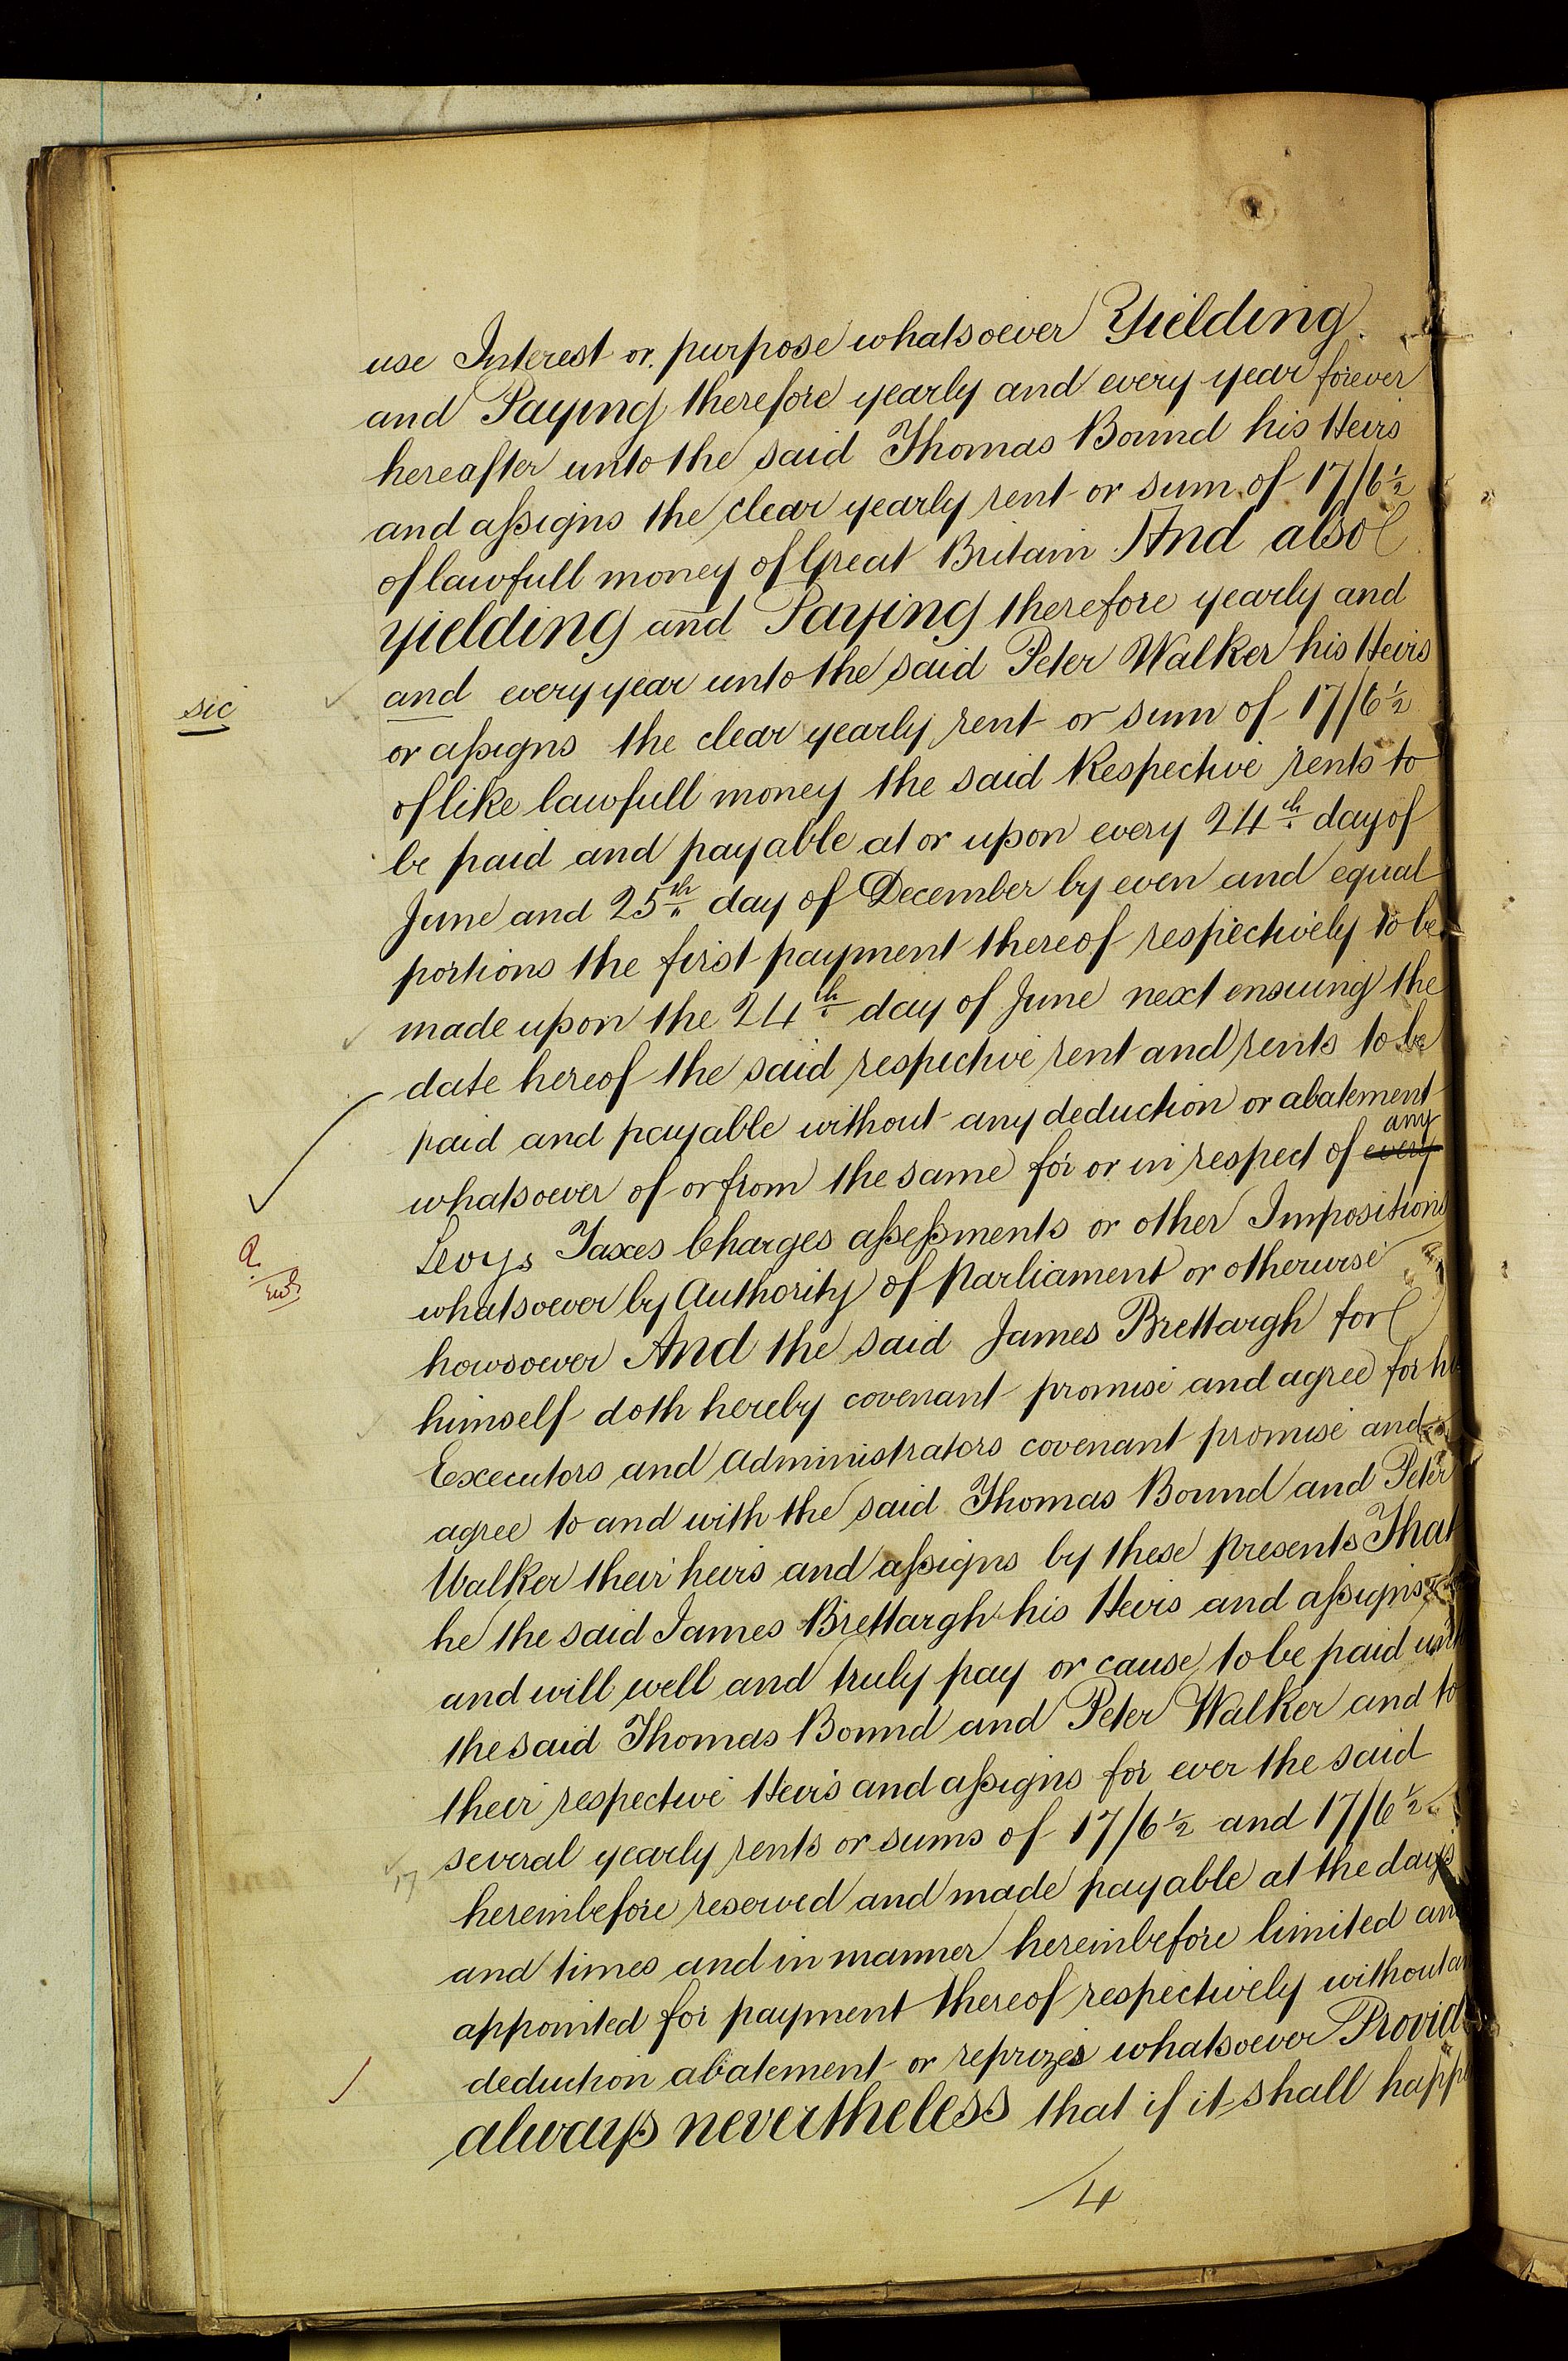 use Interest or purpose whatsoever Yielding
and Paying therefore yearly and every year forever
hereafter unto the said Thomas Bound his Heirs
and assigns the clear yearly rent or sum of 17/6½
of lawfull money of Great Britain And also
yielding and Paying therefore yearly and
sic and every year unto the said Peter Walker his Heirs
or assigns the clear yearly rent or sum of 17/6½
of like lawfull money the said Respective rents to
be paid and payable at or upon every 24th day of
June and 25th day of December by even and equal
portions the first payment thereof respectively to be
made upon the 24th day of June next ensuing the
date hereof the said respective rent and rents to be
paid and payable without any deduction or abatement
any
whatsoever of or from the same for or in respect of every
Levys Taxes Charges assessments or other Impositions
whatsoever by Authority of Parliament or otherwise
howsoever And the said James Brettargh for
himself doth hereby covenant promise and agree for
Executors and Administrators covenant promise and
agree to and with the said Thomas Bound and Peter
Walker their heirs and assigns by these presents That
he the said James Brettargh his Heirs and assigns
and will well and truly pay or cause to be paid
the said Thomas Bound and Peter Walker and to
their respective Heirs and assigns for ever the said
several yearly rents or sums of 17/6½ and 17/6½
hereinbefore reserved and made payable at the days
and times and in manner hereinbefore limited and
appointed for payment thereof respectively without
deduction abatement or reprizes whatsoever Provid
always nevertheless that if it shall happ
4